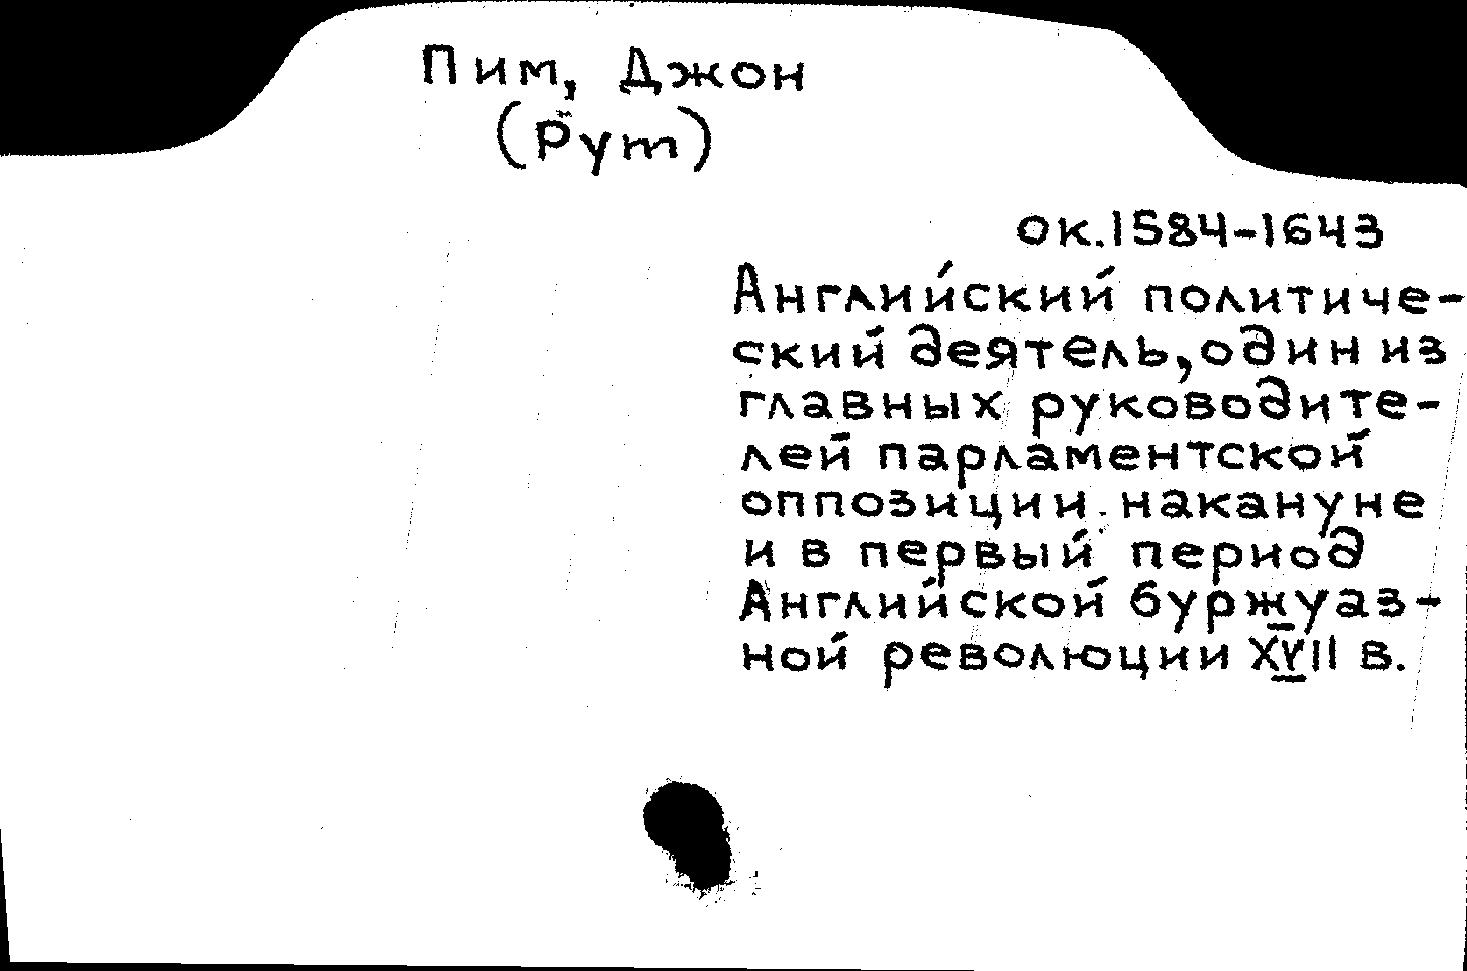 Пим, Джон
(Рут)
ок.1584-1643
Английский политиче-
ский деятель, один из
главных руководите-
лей парламентской
оппозиции накануне
и в первый период
Английской буржуаз-
ной революции XVII в.